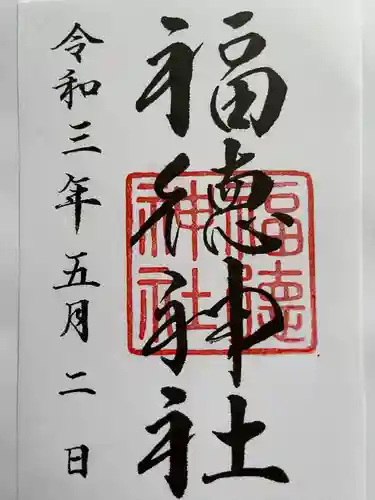 福徳神社
福德
神社
令和三年五月二日